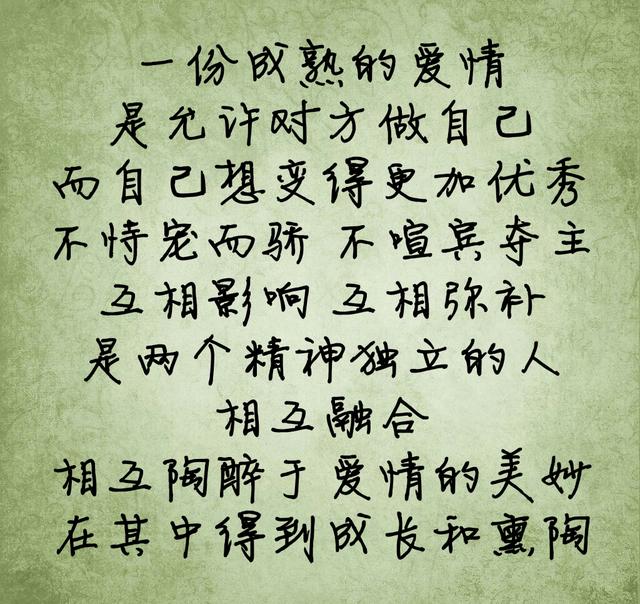 一份成熟的爱情
是允许对方做自己
而自己想变得更加优秀
不恃宠而骄 不喧宾夺主
互相影响 互相弥补
是两个精神独立的人
相互融合
相互陶醉于爱情的美妙
在其中得到成长和熏陶